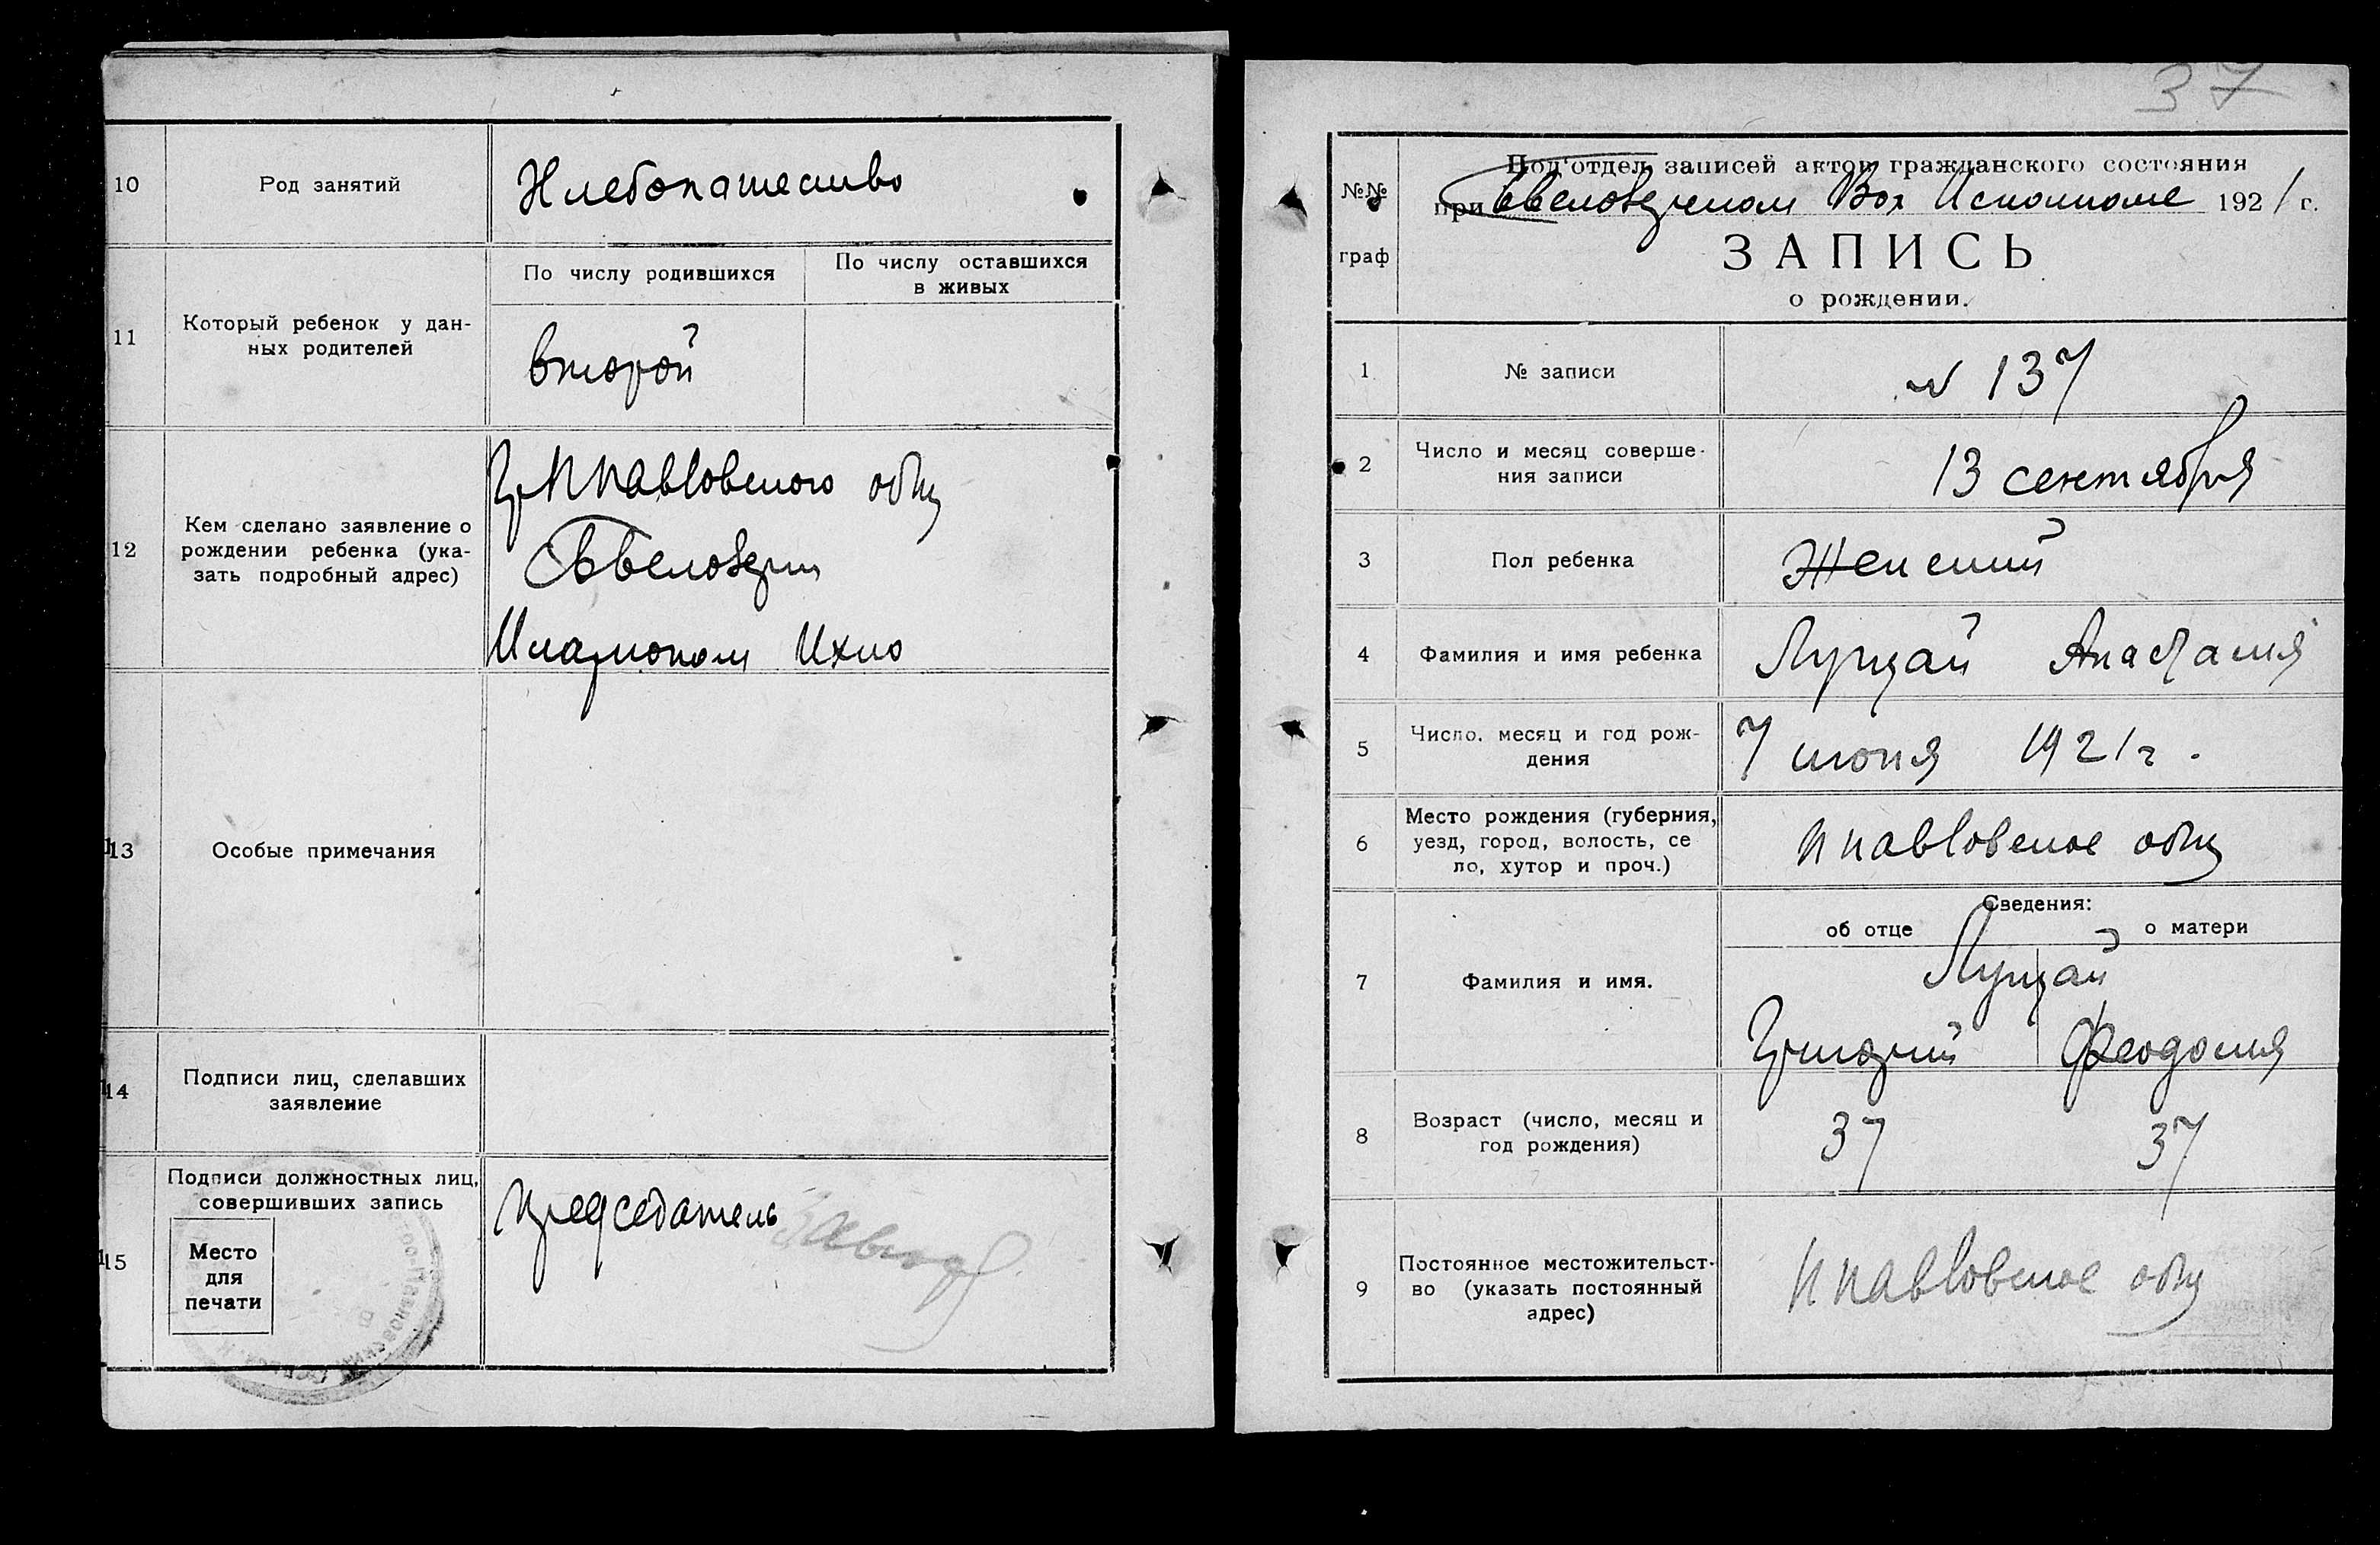 10
Род занятий
Хлебопашество
11
Который ребенок у дан-
ных родителей
По числу родившихся
По числу оставшихся
в живых
второй
12
Кем сделано заявление о
рождении ребенка (ука-
зать подробный адрес)
Гр ППавловского общ
Иларионом Ихно
13
Особые примечания
14
Подписи лиц, сделавших
заявление
15
Подписи должностных лиц,
совершивших запись
Место
для
печати
Председатель
37
№№
граф
Под'отдел записей актов гражданского состояния
при Вол Исполкоме 1921 г.
ЗАПИСЬ
о рождении.
1
№ записи
№ 137
2
Число и месяц соверше-
ния записи
13 сентября
3
Пол ребенка
Женский
4
Фамилия и имя ребенка
Луцай Анастасия
5
Число, месяц и год рож-
дения
7 июня 1921 г.
6
Место рождения (губерния,
уезд, город, волость, се
ло, хутор и проч.)
ППавловское общ
7
Фамилия и имя.
Сведения:
об отце
о матери
Луцай
Григорий
Феодосия
8
Возраст (число, месяц и
год рождения)
37
37
9
Постоянное местожительст-
во (указать постоянный
адрес)
ППавловское общ